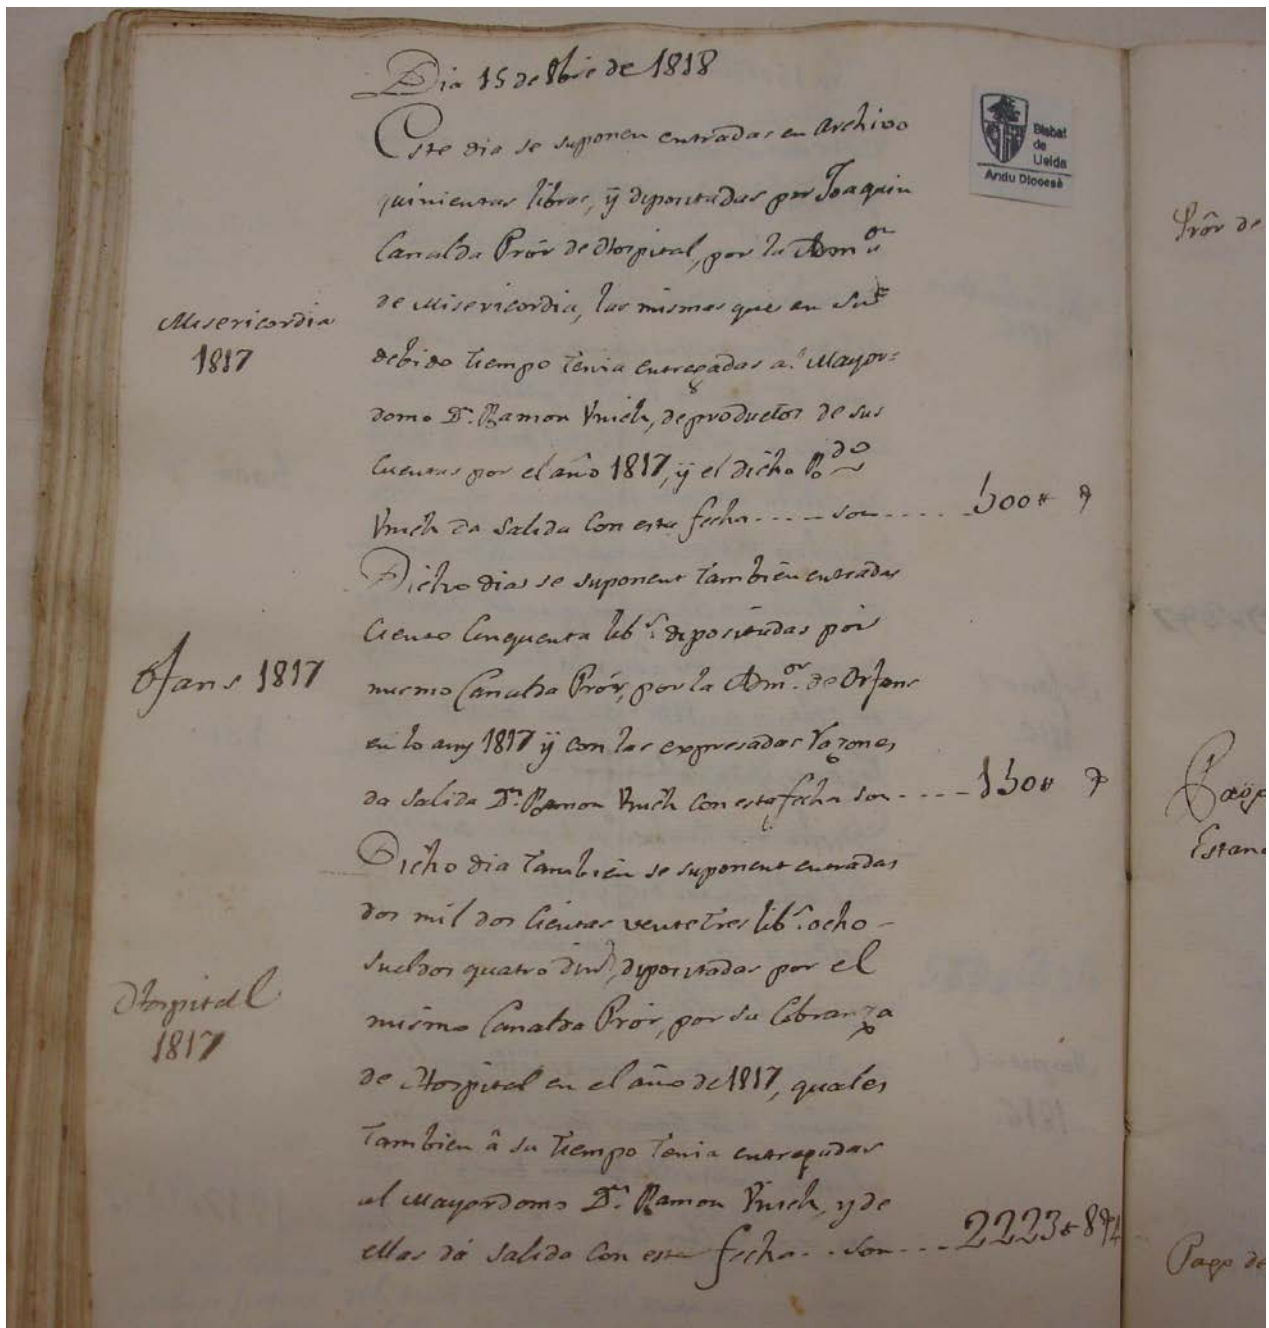 Dia 15 de 8bre de 1818
Este dia se suponen entradas en Archivo
quinientas libras, ÿ depositadas por Joaquin
Canalda Prór de Hospital, por la Adm.on
de Misericordia, las mismas que en su
debido tiempo tenia entregadas al Mayor=
domo Dn. Ramon Vnich, de productos de sus
Cuentas por el año 1817, ÿ el dicho Rdo
Vnich da salida con esta fecha ---- son ---- 500 ₶
Misericordia
1817
Dicho dia se suponent tambien entradas
Ciento Cinquenta libs. depositadas por
mismo Canalda Prór, por la Adm.on de Orfans
en lo any 1817 ÿ con las expresadas razones
da salida Dn. Ramon Vnich con esta fecha son ---- 150 ₶
Ofans 1817
Dicho dia tambien se suponent entradas
dos mil dos Cientas vente tres libs. ocho -
sueldos quatro dins, depositadas por el
mismo Canalda Prór, por su Cobranza
de Hospital en el año de 1817, quales
tambien â su tiempo tenia entregadas
al Mayordomo Dn. Ramon Vnich, y de
ellas dá salida con esta fecha -- son --- 2223 ₶ 8 4
Hospital
1817
Bisbat
de
Lleida
Arxiu Diocesà
Prôr de
Estan
Pago de